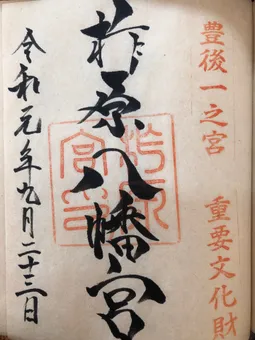 豊後一之宮　重要文化財
柞原八幡宮
令和元年九月二十三日